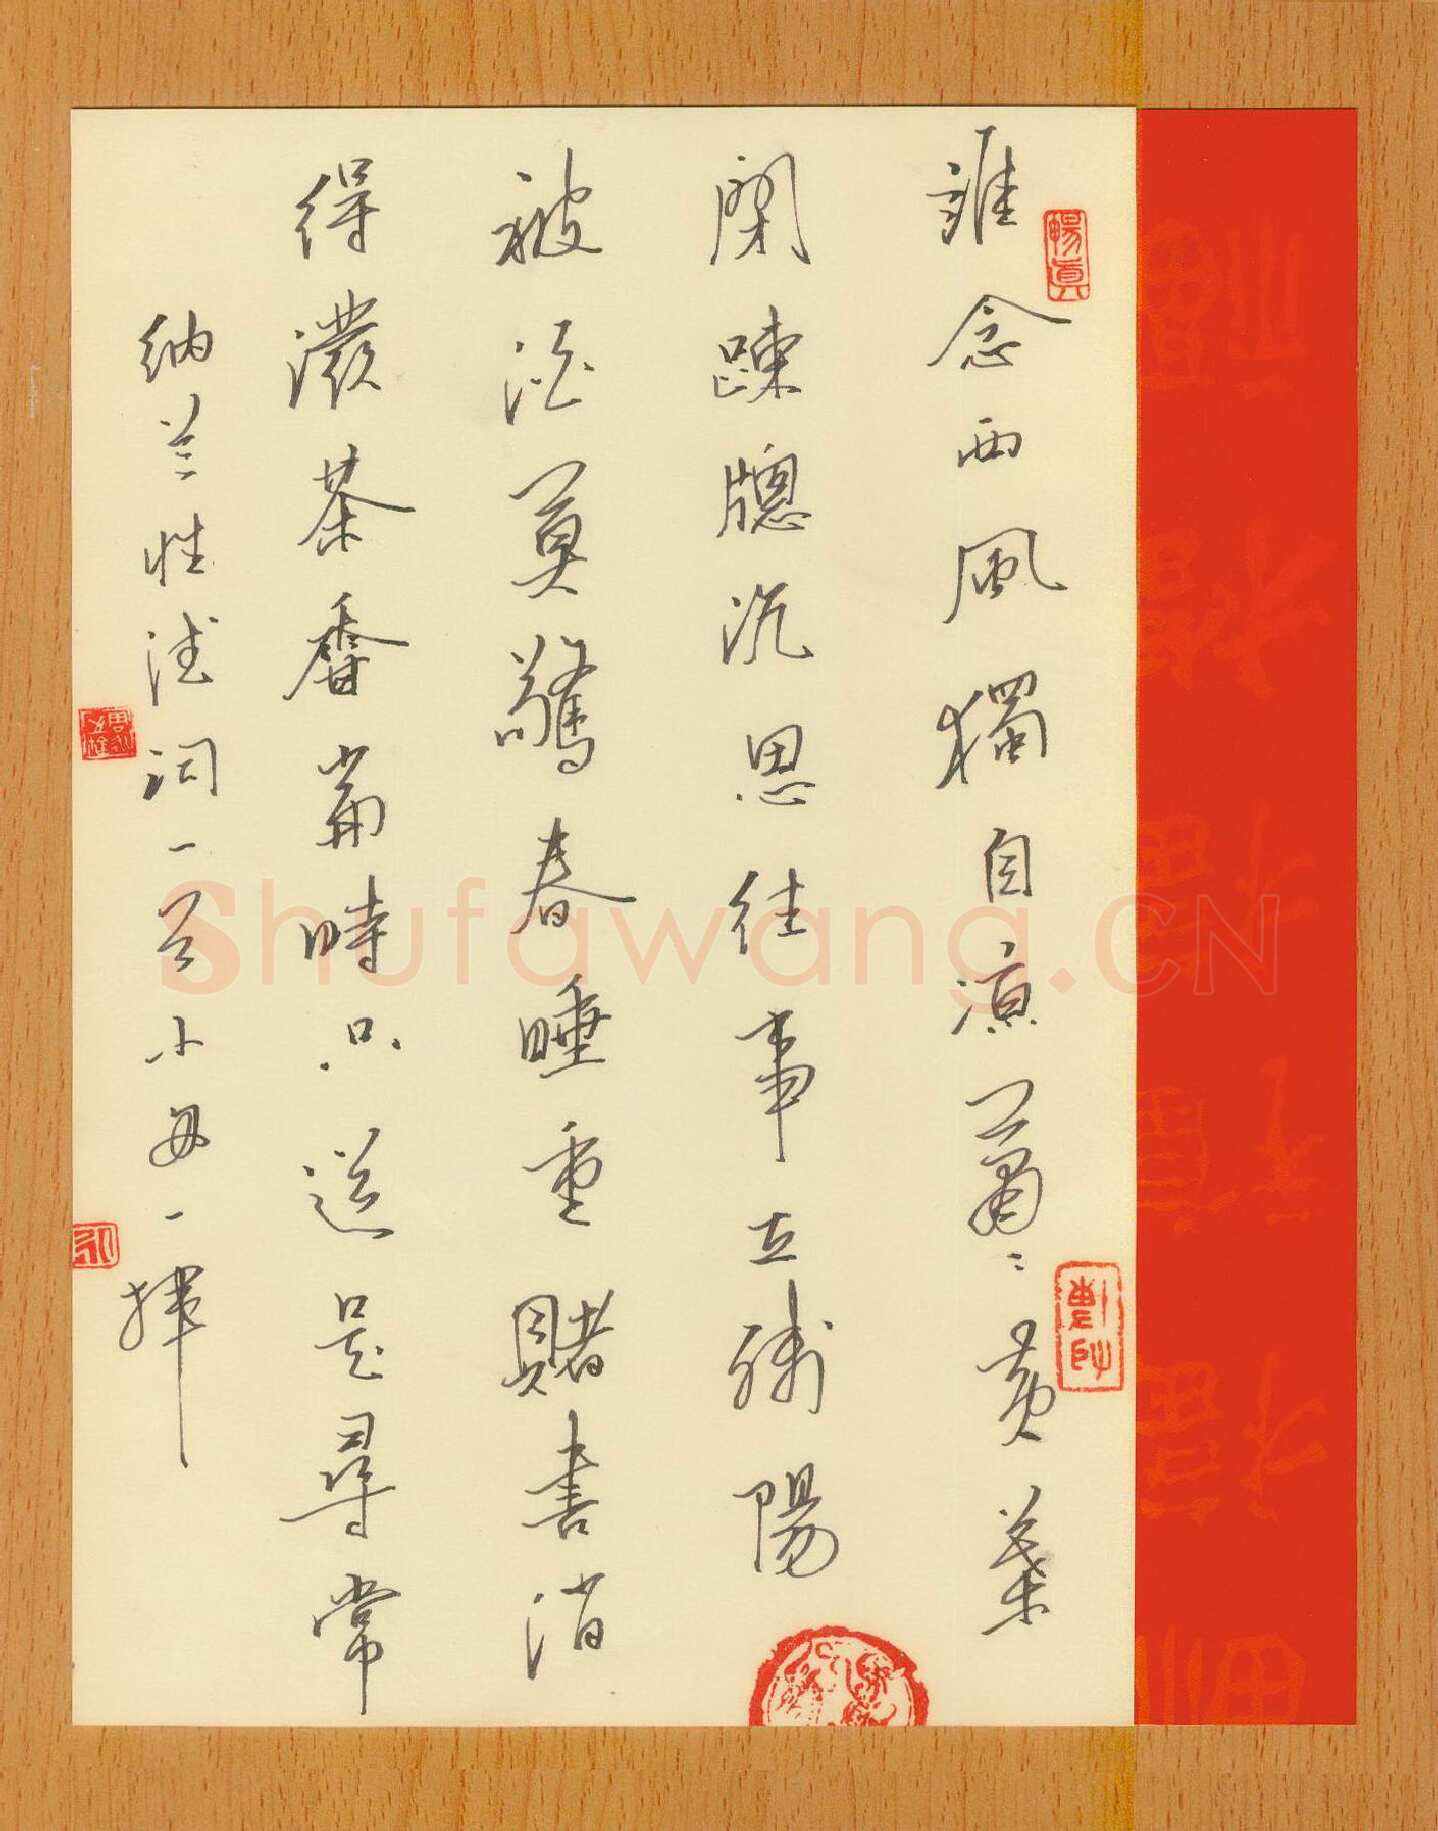 誰念西風獨自涼蕭〻黃葉
閉疎牕沉思往事立殘陽
被酒莫驚春睡重賭書消
得潑茶香當時只道是尋常
納兰性德词一首 一揮
暢真
Shufawang.CN